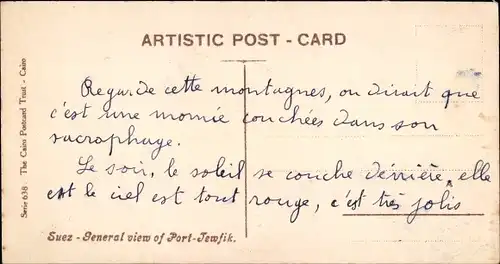 ARTISTIC POST - CARD
Serie 638 The Cairo Postcard Trust - Cairo
Regarde cette montagnes, on dirait que
c'est une momie couchées dans son
sacrophage.
Le soir, le soleil se couche dérrière, elle
est le ciel est tout rouge, c'est très jolis
Suez - General view of Port-Tewfik.